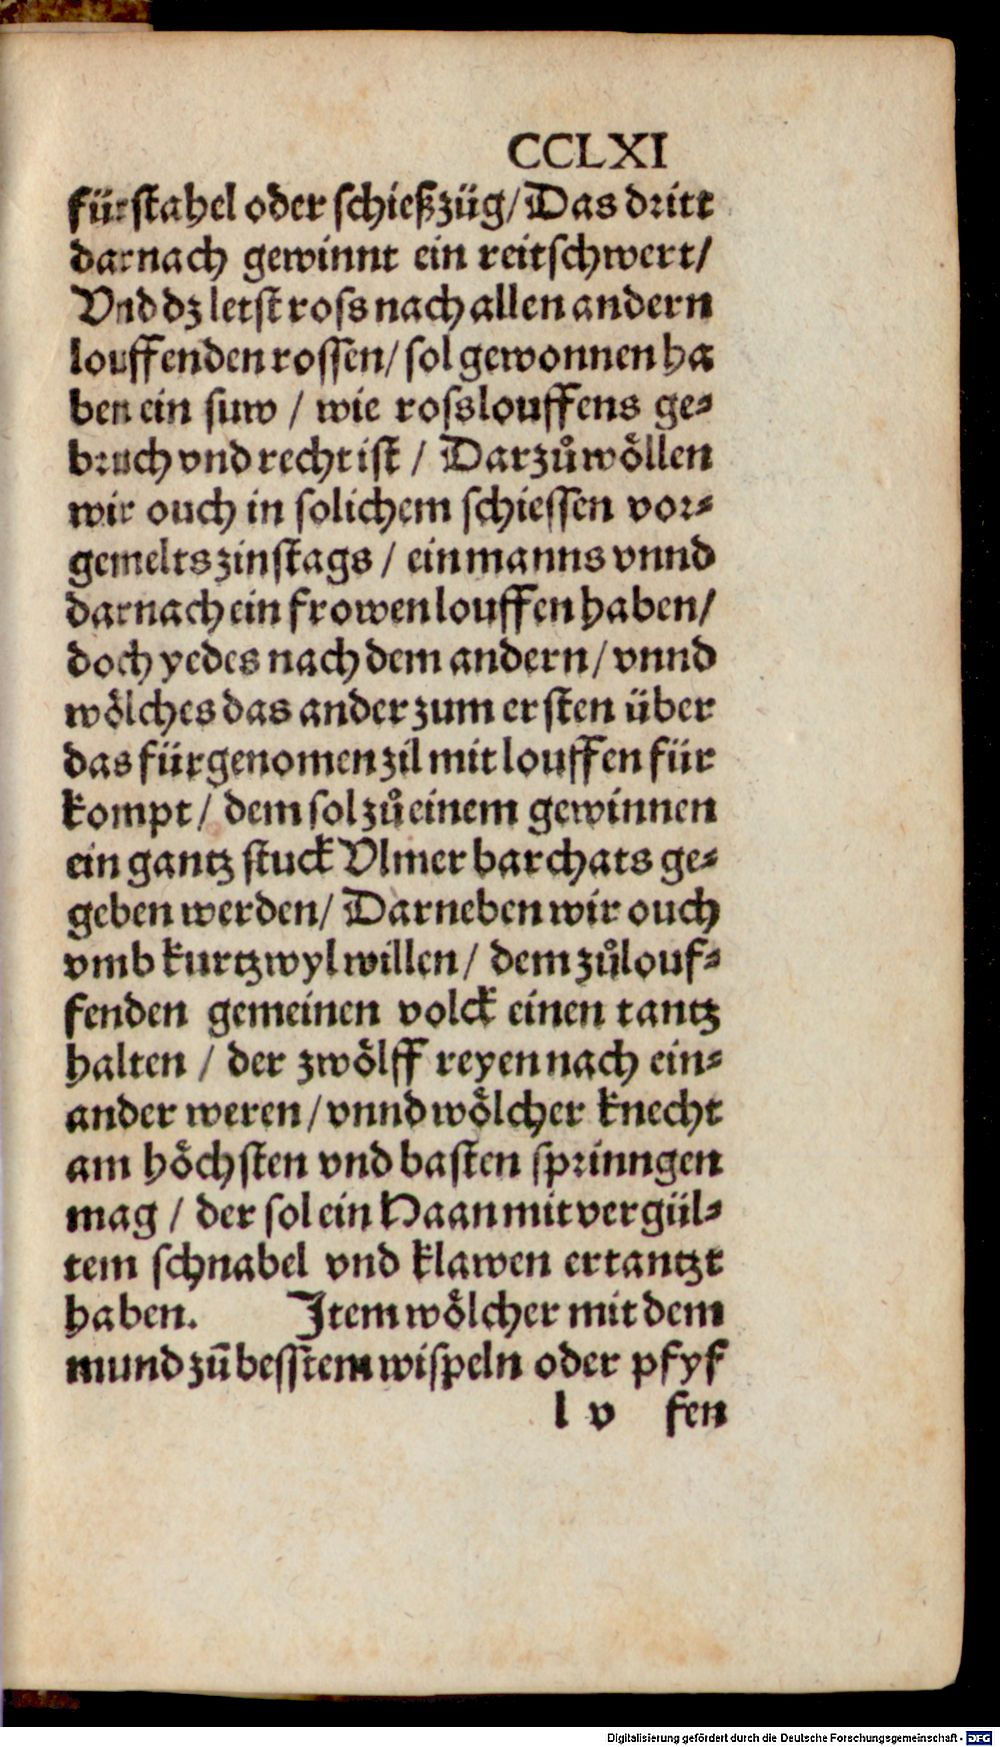 CCLXI
fürstahel oder schießzüg/ Das dritt
darnach gewinnt ein reitschwert/
Vnd dz letst ross nach allen andern
louffenden rossen/ sol gewonnen ha
ben ein suw / wie rosslouffens ge⸗
bruch vnd recht ist / Darzuͦ woͤllen
wir ouch in solichem schiessen vor⸗
gemelts zinstags / ein manns vnnd
darnach ein frowen louffen haben/
doch yedes nach dem andern/ vnnd
woͤlches das ander zum ersten über
das fürgenomen zil mit louffen für
kompt/ dem sol zuͦ einem gewinnen
ein gantz stuck Vlmer barchats ge⸗
geben werden/ Darneben wir ouch
vmb kurtzwyl willen/ dem zuͦlouf⸗
fenden gemeinen volck einen tantz
halten / der zwoͤlff reyen nach ein⸗
ander weren/ vnnd woͤlcher knecht
am hoͤchsten vnd basten sprinngen
mag / der sol ein Haan mit vergül⸗
tem schnabel vnd klawen ertantzt
haben. Item woͤlcher mit dem
mund zū besstem wispeln oder pfyf
l v fen
Digitalisierung gefördert durch die Deutsche Forschungsgemeinschaft - DFG